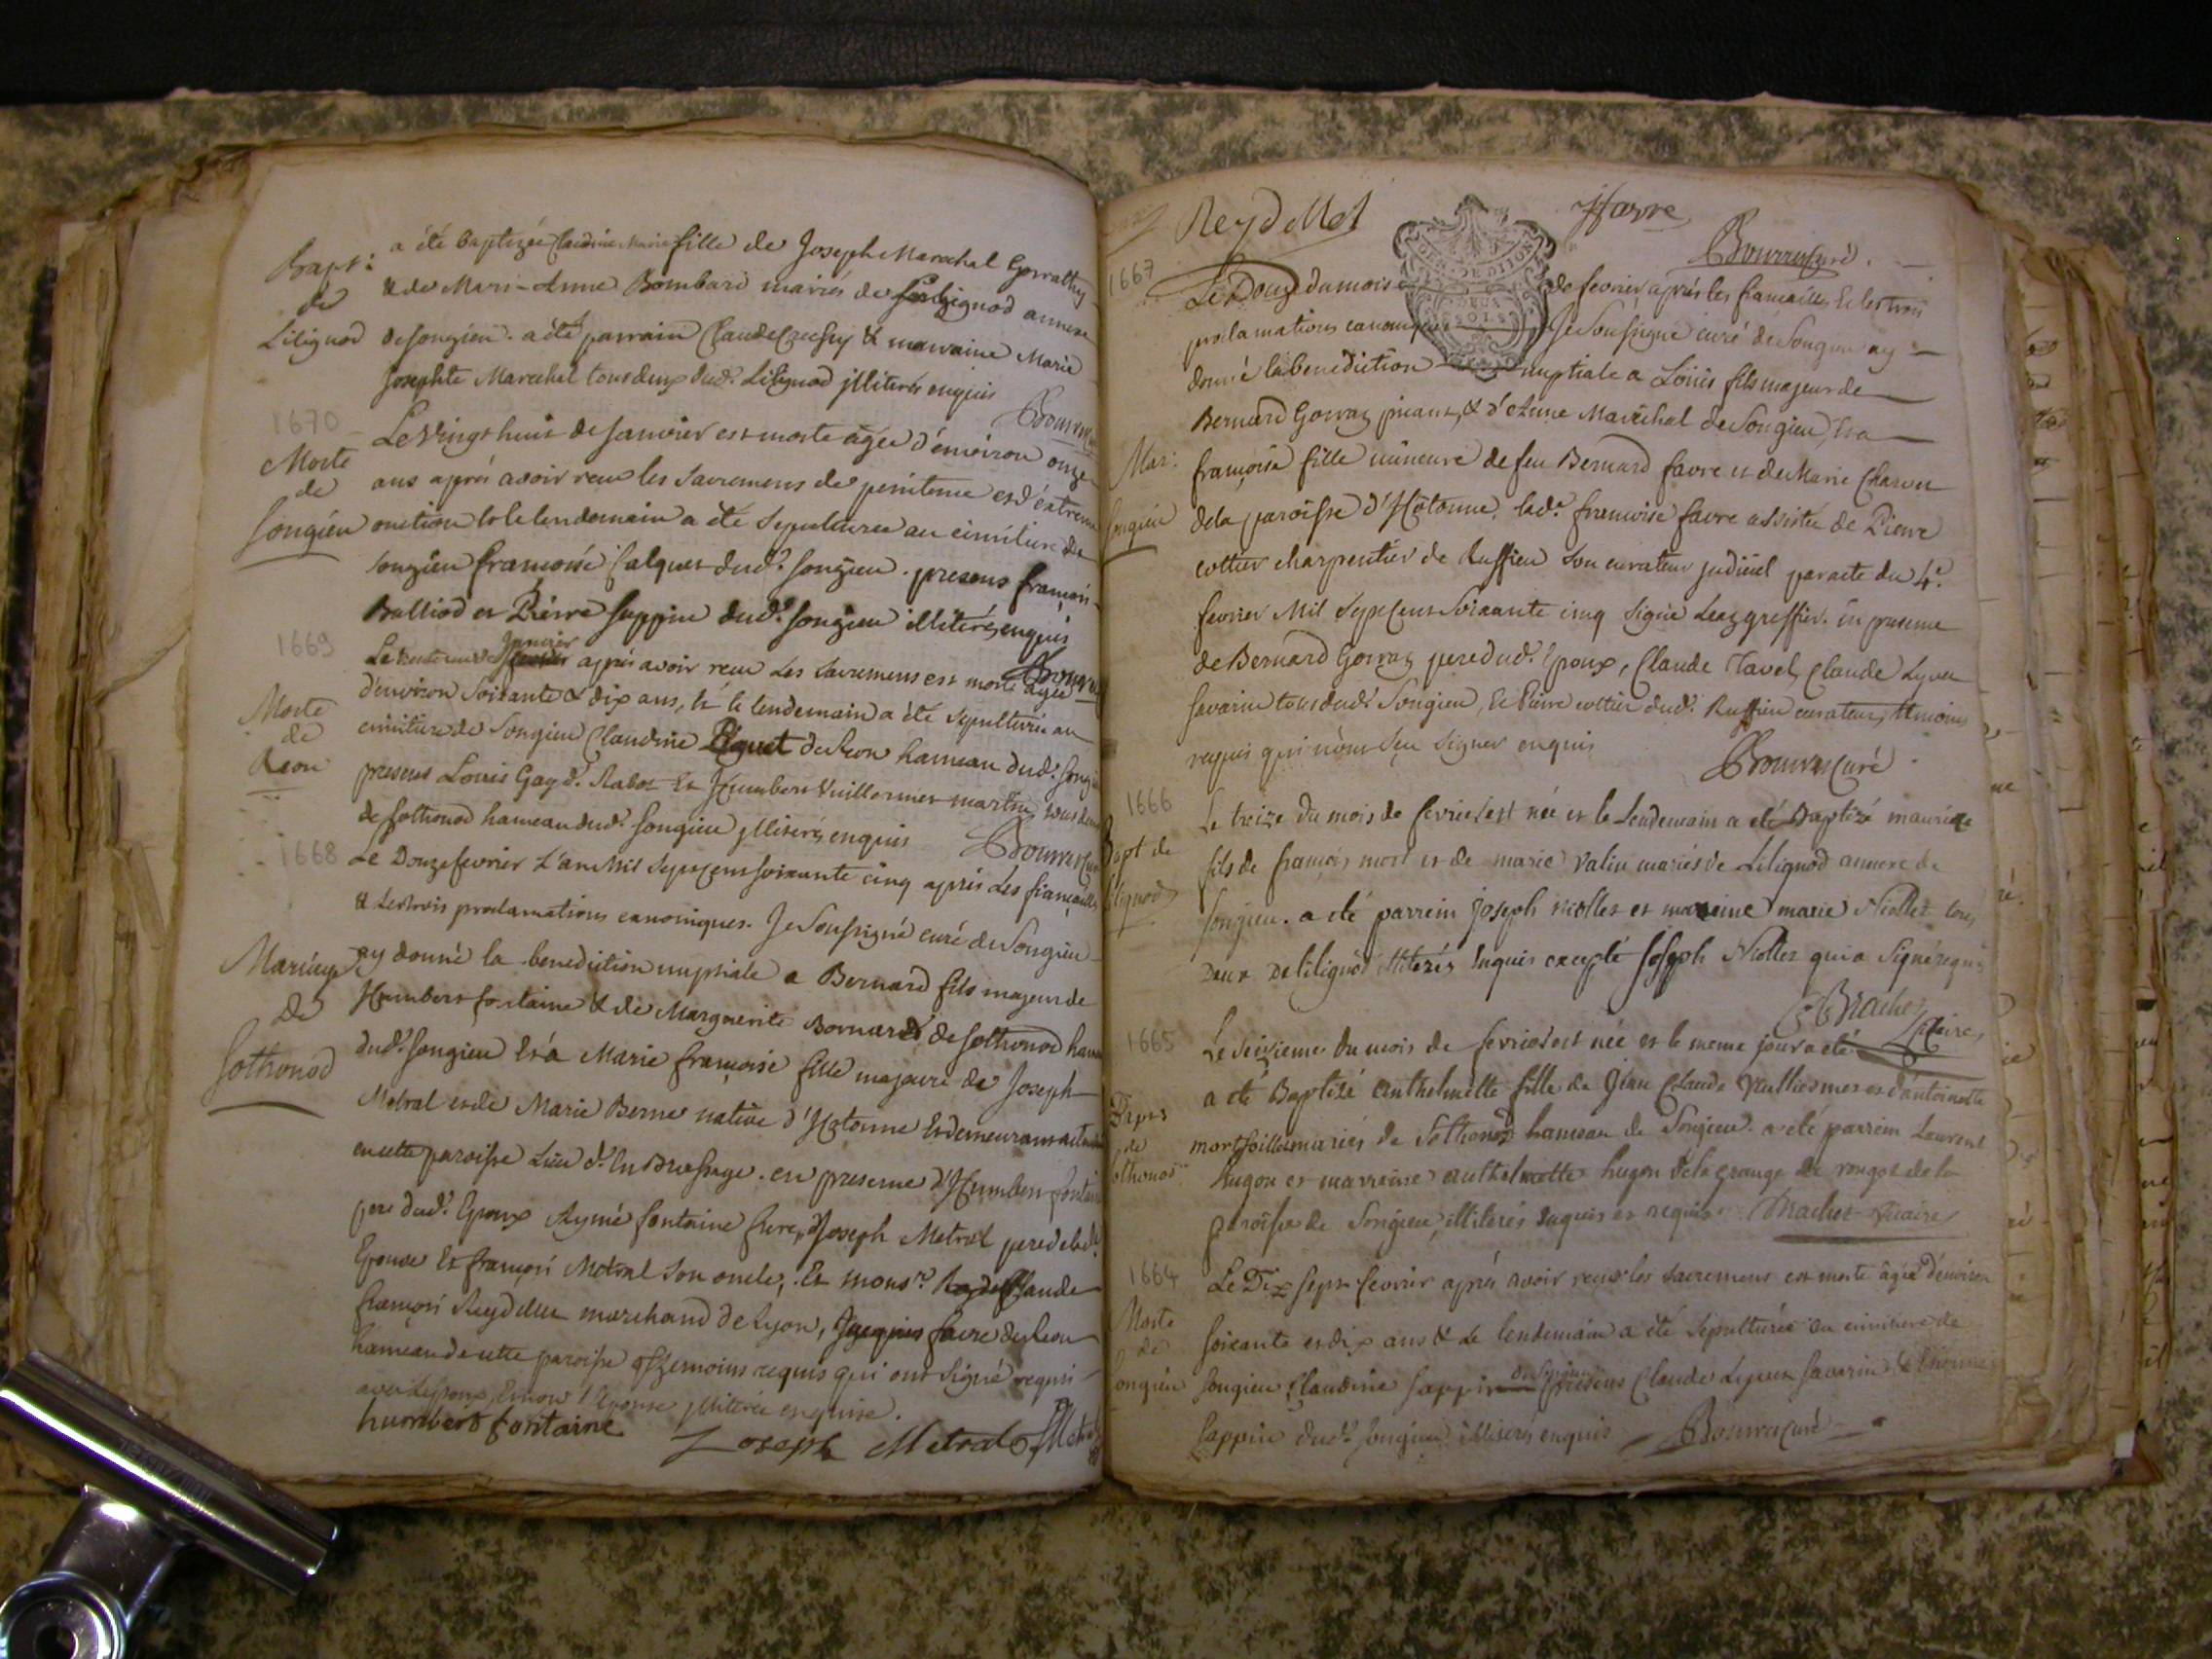 Bapt:
de
Lilignod
a été Baptizée Claudine Marie fille de Joseph Marechal
& de Marie-Anne Bombard mariés de Lilignod annexe
de songieu. a été parrain Claude & marraine Marie
Josephte Marechal tous deux dud. Lilignod illiterés enquis
1670
Morte
de
Songieu
Le vingt huit de Janvier est morte agée d'environ onze
ans aprés avoir reçu les sacremens de penitence et d'extreme
onction et le lendemain a été sepulturée au cimitiere de
songieu francoise Calquet dud. songieu. presens françois
Balliod et Pierre Sappin dud. songieu illiterés enquis
1669
Morte
de
Reon
Le Janvier aprés avoir reçu les sacremens est morte agée
d'environ soixante & dix ans, & le lendemain a été sepulturée au
cimitiere de Songieu Claudine Piquet hameau dud. Songieu
presens Louis Gay d. Rabot et Humbert Vuillermet martin tous deux
de sothonod hameau dud. songieu illiterés enquis
1668
Mariage
De
Sothonod
Le Douze fevrier L'an Mil sept cent soixante cinq aprés les fiançailles
& les trois proclamations canoniques. Je soussigné curé de Songieu
ay donné la benediction nuptiale a Bernard fils majeur de
Humbert fontaine & de Marguerite Bornard de sothonod hameau
dud. songieu Et a Marie françoise fille majeure de Joseph
Metral et de Marie Berne native d'Hotonne Et demeurant
en cette paroisse Lieu d. en presence d'Humbert fontaine
pere dud. Epoux Aymé fontaine frere, Joseph Metral pere de lad.
Epouse Et françois Metral son oncle, Et mons. Claude
françois Reydellet marchand de Lyon, Jacques favre
hameau de cette paroisse temoins requis qui ont signé requis
avec L'epoux, Et non l'Epouse illiterée enquise.
humbert fontaine Joseph Metral
Reydellet
ffavre
Bourvé curé.
1667
Mar:
Songieu
Le Douze du mois de fevrier aprés les fiançailles Et les trois
proclamations canoniques Je Soussigné curé de Songieu ay
donné la benediction nuptiale a Loüis fils majeur de
Bernard Gorraz & d'Anne Maréchal de Songieu, Et a
françoise fille mineure de feu Bernard favre et de Marie Charvet
de la paroisse d'Hotonne, lad. francoise favre assistée de Pierre
cottier charpentier de Ruffieu son curateur judiciel par acte du 4.
fevrier Mil sept cent soixante cinq signé greffier. en presence
de Bernard Gorraz pere dud. Epoux, Claude Tavel, Claude
savarin tous dud. Songieu, Et Pierre cottier dud. Ruffieu curateur, temoins
requis qui n'ont sçu signer enquis
1666
Bapt de
Lilignod
Le treize du mois de fevrier est née et le lendemain a été Baptizé maurice
fils de françois et de marie valin mariés de Lilignod annexe de
songieu. a été parrein joseph niollet et marreine marie Niollet tous
deux de lilignod illiterés Enquis excepté joseph Niollet qui a signé requis
Brachet Vicaire
1665
Bapt
de
Sothonod
Le seizieme du mois de fevrier est née et le meme jour a été
a été Baptizé anthelmette fille de Jean Claude Vuilliermet et d'antoinette
mariés de Sothonod hameau de Songieu. a été parrein Laurent
hugon et marreine anthelmette hugon de la grange de de la
paroisse de Songieu, illiterés enquis et requis. Brachet Vicaire
1664
Morte
de
Songieu
Le Dix sept fevrier aprés avoir reçu les sacremens est morte agée d'environ
soixante et dix ans & le lendemain a été sepulturée au cimitiere de
songieu, Claudine Sappin presens Claude savarin
sappin dud. songieu illiterés enquis